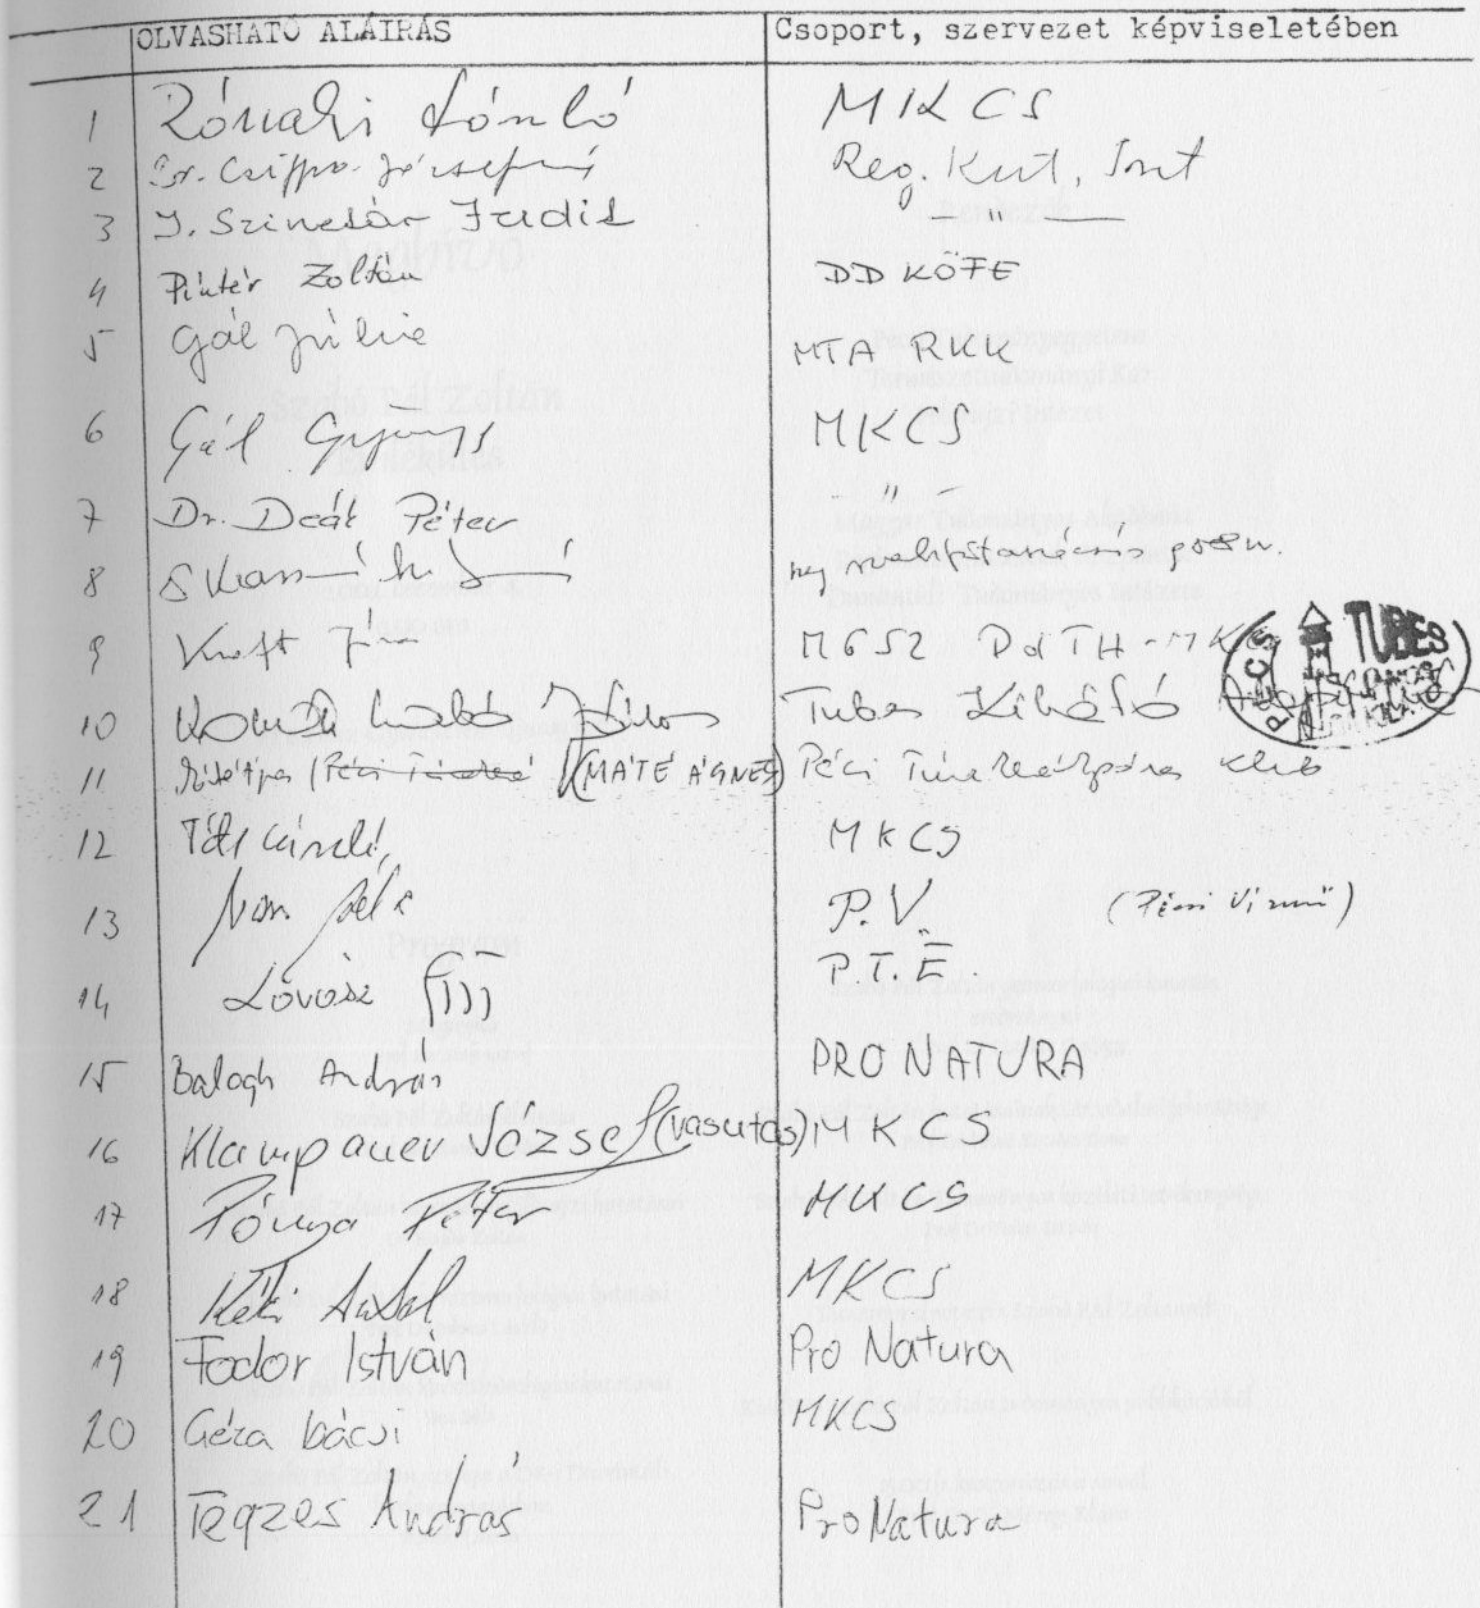 OLVASHATÓ ALÁÍRÁS Csoport, szervezet képviseletében
1 Rónaki László MKCS
2 Dr. Csippo Józsefné Reg. Kut. Int
3 J. Szinesár Judit - " -
4 Pintér Zoltán DD KÖFE
5 Gál Júlia MTA RKK
6 Gál György MKCS
7 Dr. Deák Péter - " -
8
9 Kraft János MGSZ DdTH-MKCS
10 Szabó Tubes Kilátó
PÉCS TUBES
11 (MÁTÉ ÁGNES) Pécsi Túra Klub
12 Tóth László MKCS
13 Béla P.V. (Pécsi Vízmű)
14 Lovász P.T.E.
15 Balogh András PRO NATURA
16 Klampauer József (vasutas) MKCS
17 Pónya Péter MKCS
18 Kéki Antal MKCS
19 Fodor István Pro Natura
20 Géza bácsi MKCS
21 Tegzes András Pro Natura